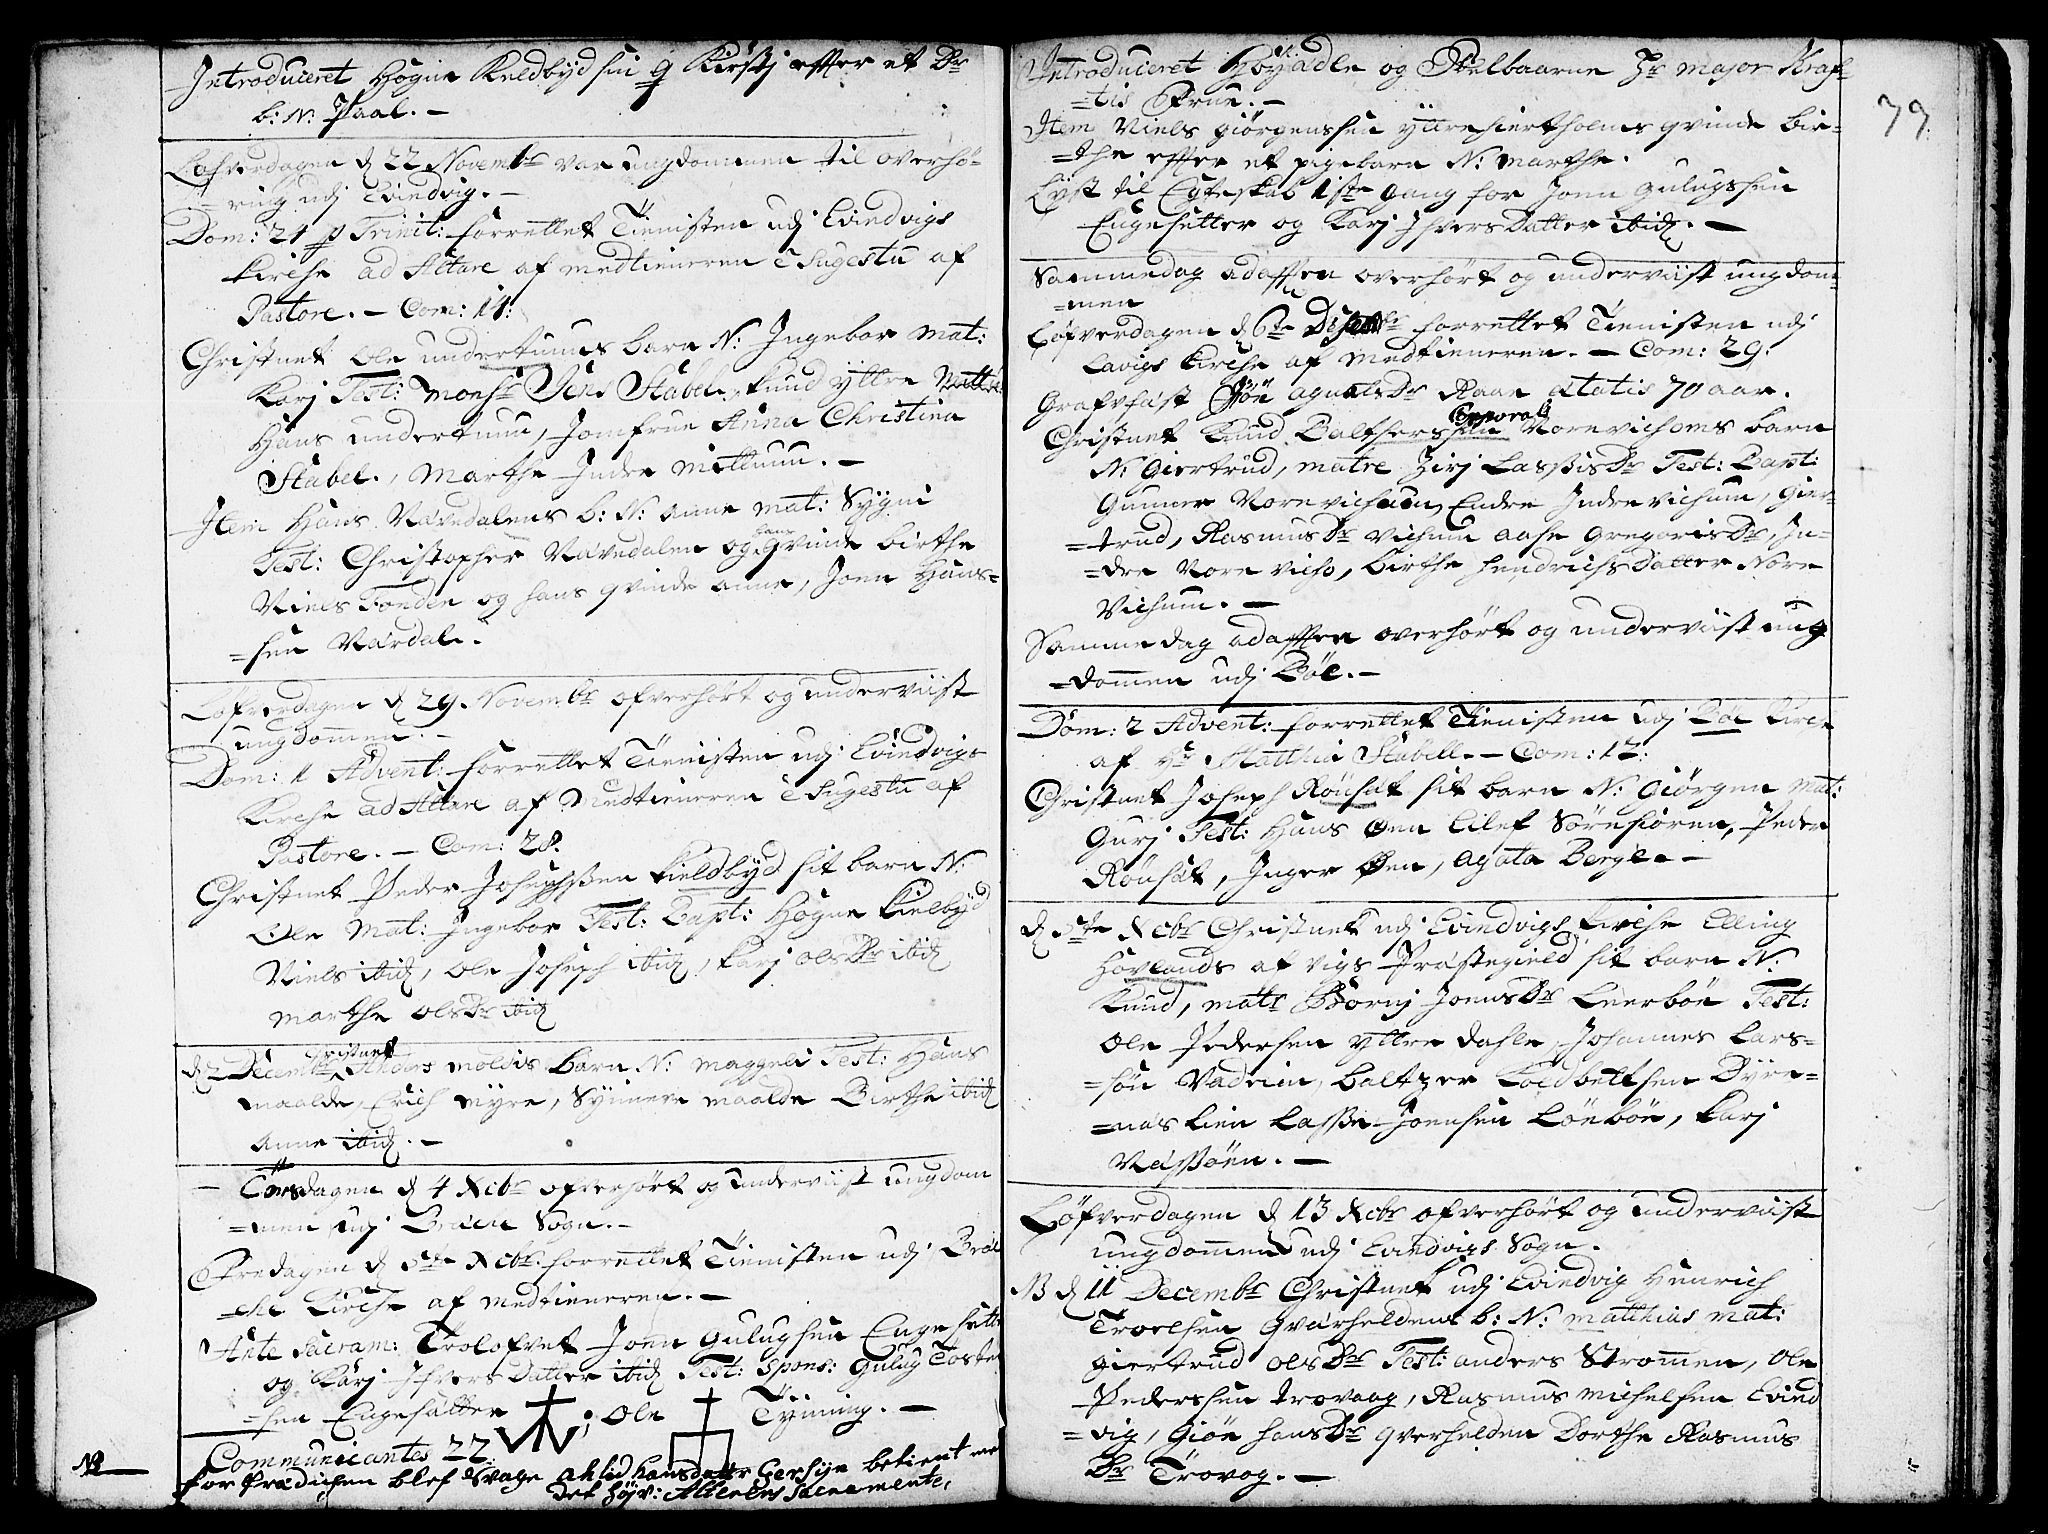 Introduceret Högne Kieldbyd sin q Kirstj effter et Dr
b: N: Paal. -
Löfverdagen d 22 Novembr var ungdommen til overhö-
=ring udj Evindvig. -
Dom: 21 p Trinit: forrettet Tienisten udj Evindvigs
Kirche ad Altare af medtieneren è Sugestu af
Pastore. - Com: 14:
Christnet Ole undertuuns barn N: Ingebor mat:
Karj Test: Monsr Jens Stabel, Knud yttre
Hans undertuun, Jomfrue Anna Christina
Stabel., Marthe Indre mittuun. -
Item Hans Nävedalens b: N: Anne mat: Sygni
Test: Christopher Nävedalen og hans qvinde birthe
Niels Tonden og hans qvinde anne, Joen Hans=
=sen Närdal.
Löfverdagen d 29. Novembr ofverhört og underviist
ungdommen. -
Dom: 1 Advent: forrettet Tienisten udj Evindvigs
Kirche ad Altare af Medtieneren è Sugestu af
Pastore. - Com: 28.
Christnet Peder Josephssen Kieldbyd sit barn N:
Ole Mat: Ingebor Test: Bapt: Högne Kielbyd
Niels ibid, Ole Joseph ibid, Karj olsDr ibid
Marthe olsDr ibid
d 2 Decembr Christnet Anders moldis barn N: Maggeli Test: Hans
maalde, Erich myre, Synneve maalde Birthe ibid
Anne ibid. -
- Torsdagen d 4 Xcbr ofverhört og underviist ungdom
=men udj Bräche Sogn. -
Fredagen d 5te Xcbr. forrettet Tienisten udj Brä
=che Kirche af medtieneren. -
Ante Sacram: Trolofvet Joen Gulugsen Engesetter
og Karj IfversDatter ibid Test: Spons: Gulug Toste
=sen Engesätter ; Ole Tynning. -
Communicantes 22
NB for Prædichen blef Svage Ahlid Hansdatter Gersyn betient med
det höyv: Alterens Sacramente,
79.
Introduceret Höyädle og Velbaarne Hr major Kraf=
=tis Frue. -
Item Niels giörgenssen yttrehiertholms qvinde Bir=
=the effter et pigebarn N: Marthe.
Lyst til Egteskab 1ste gang for Joen gulugssen
Engesetter og Karj IfversDatter ibid. -
Sammedag adafften overhört og underviist ungdom=
=men
Löfverdagen d 6te Decembr forrettet Tienisten udj
Lavigs Kirche af Medtieneren. - Com: 29.
Grafvfäst Giöe agualsDr Raae ætatis 70 aar.
Christnet Knud Baltserssen Corporal Norevichoms barn
N: Giertrud, matre Zirj LassisDr Test: Bapt:
Gunner Norevichum, Endre Indrevichum, Gier=
=trud, RasmusDr Vichum aase gregorisDr, In=
=dre Nore vicho, birthe hendrichsDatter Nore
Vichum. -
Sammedag adafften overhört og underviist ung
=dommen udj Böe. -
Dom: 2 Advent: forrettet Tienisten udj Böe Kirche
af Hr Matthia Stabell. - Com: 12:
Christnet Joseph Rönset sit barn N: Giörgen Mat:
Gurj Test: Hans Öen Eilef Söresiören, Peder
Rönsät, Inger Öen, Agata Berge. -
d 5te Xcbr Christnet udj Evindvigs Kirche Elling
Hovlands af vigs Prästegield sit barn N:
Knud, matr Börnj JoensDr Leerbön Test:
Ole Pedersen yttre dahle, Johannes Lars=
=sön Vadeim, Baltzer Kolbeltsen Dÿre=
=näs Lien Lasse Joensen Löebön, Karj
Nässöen. -
Löfverdagen d 13 Xcbr ofverhört og underviist
ungdommen udj Evindvigs Sogn.
NB d 11 Decembr Christnet udj Evindvig Hinrich
Troelsen Qvärheldens b: N: Matthias Mat:
giertrud olsDr Test: anders Strommen, Ole
Pederssen trovaag, Rasmus Michelsen Evind
=vig, Giöe hansDr Qverhelden Dorthe Rasmus
Dr Trovog. -